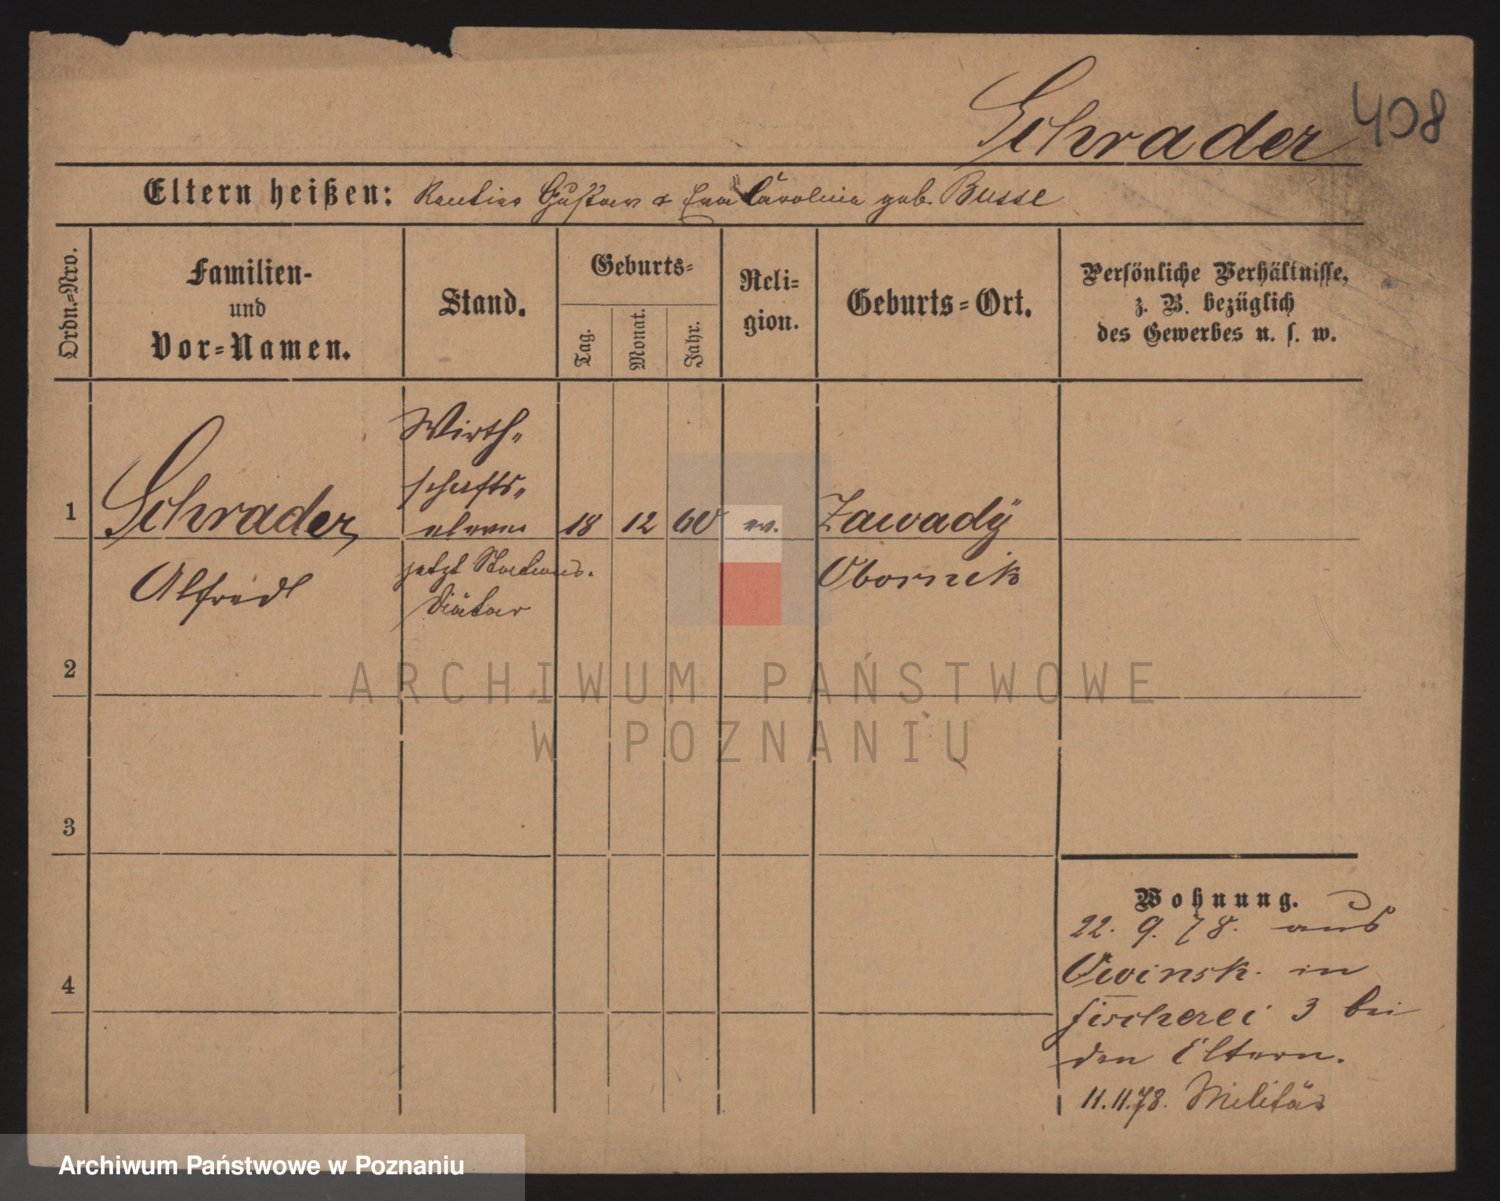 Schrader 408
Eltern heißen: Rentier Gustav & Eva Carolina geb. Busse
Ordn.-Nro.
Familien-
und
Vor-Namen.
Stand.
Geburts-
Tag.
Monat.
Jahr.
Reli-
gion.
Geburts-Ort.
Persönliche Verhältnisse,
z. B. bezüglich
des Gewerbes u. s. w.
1
Schrader,
Alfred
Wirth-
schafts-
eleve
jetzt Stations-
Diätar
18 12 60 ev.
Zawady
Obornik
2
3
4
Wohnung.
22. 9. 78. aus
Owinsk. in
Fischerei 3 bei
den Eltern.
11.11.78. Militär
ARCHIWUM PAŃSTWOWE
W POZNANIU
Archiwum Państwowe w Poznaniu